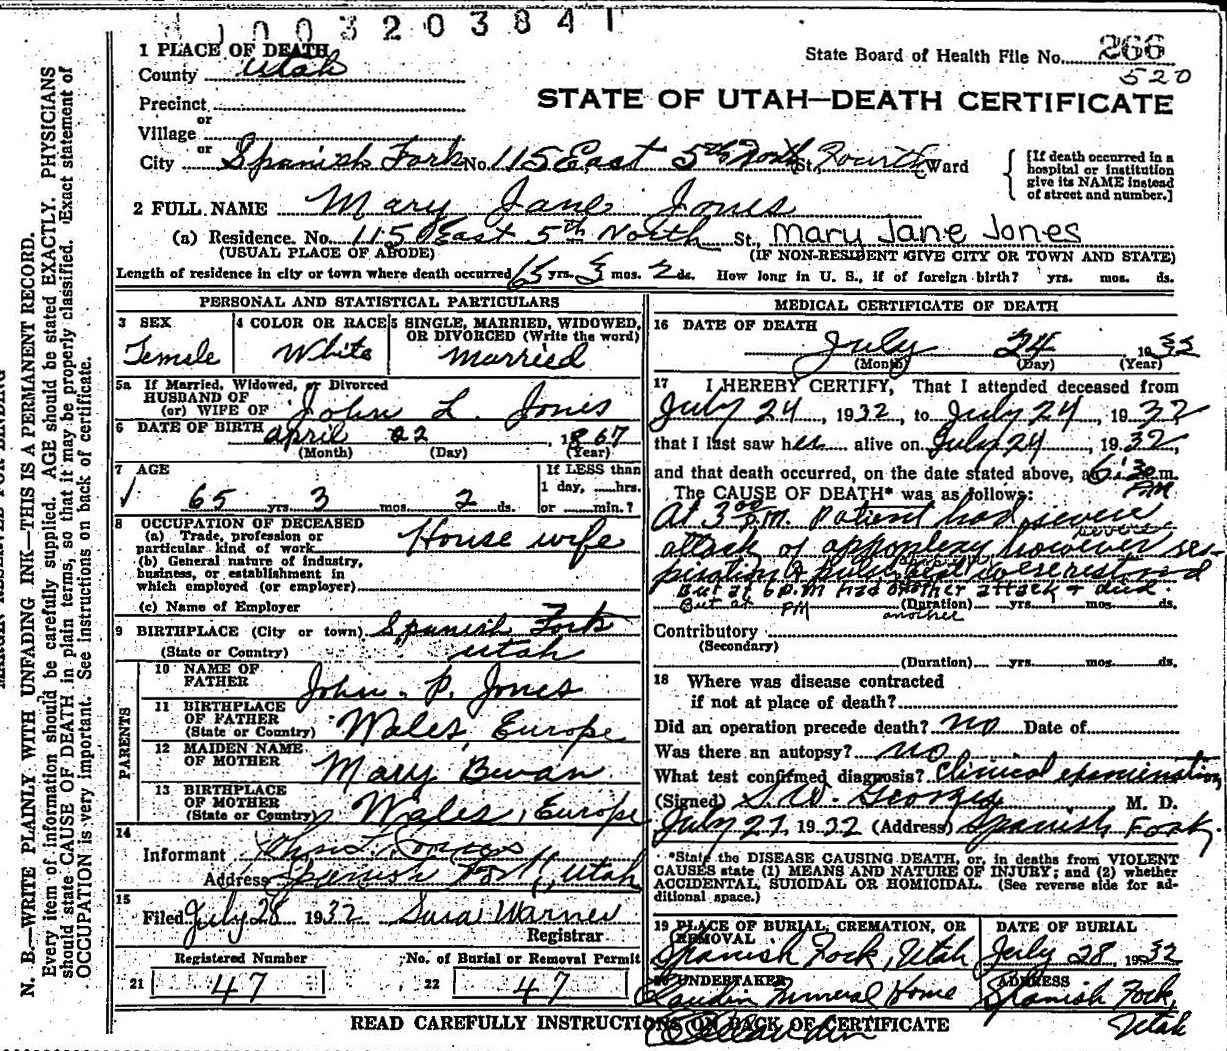 003203841
1 PLACE OF DEATH
State Board of Health File No. 266
County Utah
520
Precinct
STATE OF UTAH—DEATH CERTIFICATE
or
Village
or
City Spanish Fork No. 115 East 5th North St., Fourth Ward
[If death occurred in a hospital or institution give its NAME instead of street and number.]
2 FULL NAME Mary Jane Jones
(a) Residence. No. 115 East 5th North St., Mary Jane Jones
(USUAL PLACE OF ABODE) (IF NON-RESIDENT GIVE CITY OR TOWN AND STATE)
Length of residence in city or town where death occurred 65 yrs. 3 mos. 2 ds. How long in U. S., if of foreign birth? yrs. mos. ds.
PERSONAL AND STATISTICAL PARTICULARS
3 SEX
Female
4 COLOR OR RACE
White
5 SINGLE, MARRIED, WIDOWED,
OR DIVORCED (Write the word)
Married
5a If Married, Widowed, or Divorced
HUSBAND OF
(or) WIFE OF John L. Jones
6 DATE OF BIRTH april 22, 1867
(Month) (Day) (Year)
7 AGE
65 yrs. 3 mos. 2 ds.
If LESS than
1 day, hrs.
or min.?
8 OCCUPATION OF DECEASED
(a) Trade, profession or
particular kind of work House wife
(b) General nature of industry,
business, or establishment in
which employed (or employer)
(c) Name of Employer
9 BIRTHPLACE (City or town) Spanish Fork
(State or Country) Utah
PARENTS
10 NAME OF
FATHER John P. Jones
11 BIRTHPLACE
OF FATHER
(State or Country) Wales, Europe
12 MAIDEN NAME
OF MOTHER Mary Bevan
13 BIRTHPLACE
OF MOTHER
(State or Country) Wales, Europe
14
Informant John L. Jones
Address Spanish Fork, Utah
15
Filed July 28 1932 Sara Warner
Registrar
Registered Number
21 47
No. of Burial or Removal Permit
22 47
MEDICAL CERTIFICATE OF DEATH
16 DATE OF DEATH
July 24 1932
(Month) (Day) (Year)
17 I HEREBY CERTIFY, That I attended deceased from
July 24, 1932, to July 24, 1932
that I last saw her alive on July 24, 1932,
and that death occurred, on the date stated above, at 6:30 m.
PM
The CAUSE OF DEATH* was as follows:
At 3 00 P.M. Patient had severe
severe
attack of appoplexy however res-
piration & pulse were restored
But at 6 P.M Had another attack & died.
But at PM another
(Duration) yrs. mos. ds.
Contributory
(Secondary)
(Duration) yrs. mos. ds.
18 Where was disease contracted
if not at place of death?
Did an operation precede death? no Date of
Was there an autopsy? no
What test confirmed diagnosis? Clinical examination
(Signed) S. W. Georges M. D.
July 27, 1932 (Address) Spanish Fork
*State the DISEASE CAUSING DEATH, or, in deaths from VIOLENT
CAUSES state (1) MEANS AND NATURE OF INJURY; and (2) whether
ACCIDENTAL, SUICIDAL OR HOMICIDAL. (See reverse side for ad-
ditional space.)
19 PLACE OF BURIAL, CREMATION, OR
REMOVAL
Spanish Fork, Utah
DATE OF BURIAL
July 28, 1932
20 UNDERTAKER
Claudin Funeral Home
ADDRESS
Spanish Fork,
Utah
READ CAREFULLY INSTRUCTIONS ON BACK OF CERTIFICATE
MARGIN RESERVED FOR BINDING
N. B.—WRITE PLAINLY WITH UNFADING INK—THIS IS A PERMANENT RECORD.
Every item of information should be carefully supplied. AGE should be stated EXACTLY. PHYSICIANS
should state CAUSE OF DEATH in plain terms, so that it may be properly classified. Exact statement of
OCCUPATION is very important. See instructions on back of certificate.